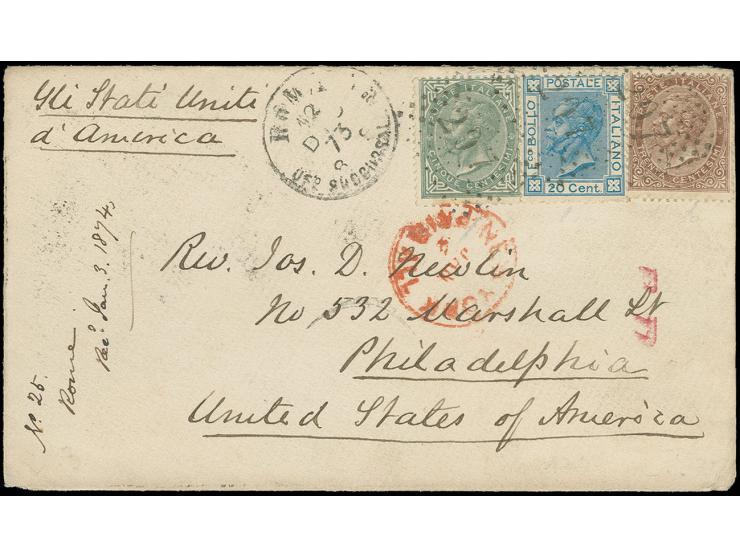 Gli Stati Uniti
d'America
ROMA
12
D
73
8
UFF. SUCCURSAL
CINQUE CENTESIMI
POSTALE
ITALIANO
F.co BOLLO
20 Cent.
POSTE ITALIANE
TRENTA CENTESIMI
NEW YORK
JAN
Rev. Jos. D. Newlin
No 532 Marshall St
Philadelphia
United States of America
No. 25.
Rome
Recd Jan. 3. 1874